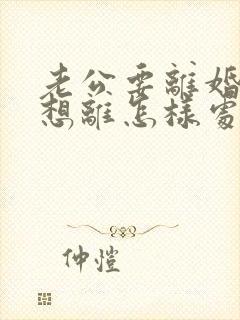 老公要離婚
想離怎樣處
仲愷